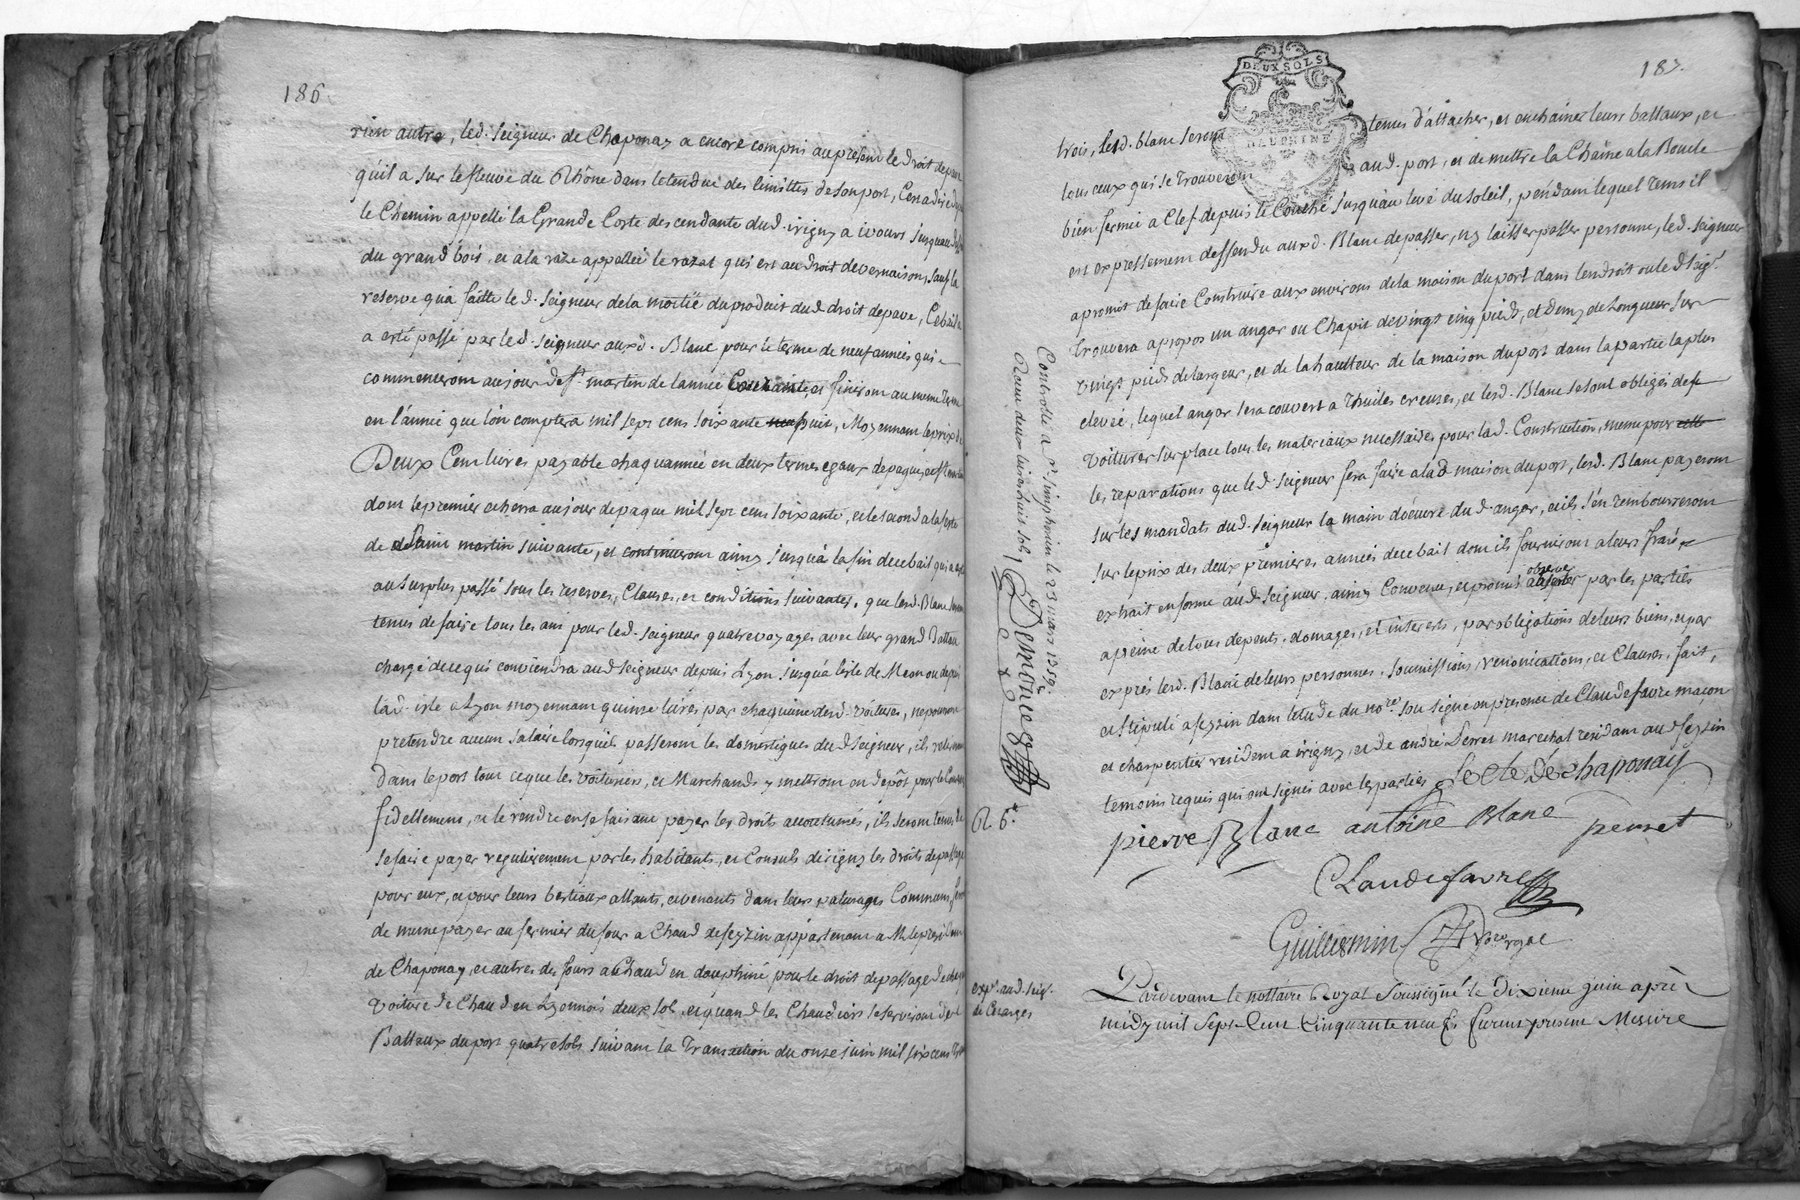 186.
rien autre, led. seigneur de Chaponay a encore compris au present le droit de pave
quil a sur le fleuve du Rhône dans letendue des limittes de son port, Cest a dire
le Chemin appellé la Grande Coste descendante dud. irigny a ivours jusquau
du grand bois, et a la raze appellée le razat qui est au droit de vernaison, sauf la
reserve qu'a faitte led. seigneur de la moitié du produit dud droit de pave, Cebail
a esté passé par led. seigneur auxd. Blanc pour le terme de neuf années qui
commenceront au jour de st. martin de lannée Courante, et finiront au meme terme
en l'année que l'on comptera mil sept cens soixante huit, Moyennant le prix de
Deux Cent livres payable chaquannée en deux termes egaux de paque, et st martin
dont le premier echerra au jour de paque mil sept cens soixante, et le second a la feste
de saint martin suivante, et continueront ainsy jusqu'a la fin de ce bail qui a esté
au surplus passé sous les reserves, Clauses, et conditions suivantes. que lesd. Blanc seront
tenus de faire tous les ans pour led. seigneur quatre voyages avec leur grand Batteau
chargé de ce qui conviendra aud seigneur depuis Lyon jusqu'a lisle de Meon ou depuis
lad. isle a Lyon moyennant quinse livres par chaquune desd. voitures, ne pourront
pretendre aucun salaire lorsquils passeront les domestiques dud seigneur, ils retireront
dans le port tout ce que les voituriers, et Marchands y mettront en depôt pour le
fidellement, et le rendre en se faisant payer les droits accoutumés, ils seront tenus de
se faire payer regulierement par les habitants, et Consuls dirigny les droits de passage
pour eux, et pour leurs bestiaux allants, et venants dans leurs paturages Communs,
de meme payer au fermier du four a Chaud de feyzin appartenant a M. le president
de Chaponay, et autres des fours a Chaud en dauphiné pour le droit de passage de chaque
voiture de Chaud en Lyonnois deux sols, et quand les Chaudiers se serviront des
Batteaux du port quatre sols suivant la Transaction du onze juin mil six cens
DEUX SOLS
DAUPHINE
187.
trois, lesd. blanc seront tenus d'attacher, et enchainer leurs batteaux, et
tous ceux qui se trouveront aud. port, et de mettre la Chaine a la Boucle
bien fermée a Clef depuis le Couché jusquau levé du soleil, pendant lequel tems il
est expressement deffendu auxd. Blanc de passer, ny laisser passer personne, led. seigneur
a promit de faire Construire aux environs de la maison du port dans lendroit ou led seigr.
trouvera a propos un angar ou Chapit de vingt cinq pieds, et demy de longueur sur
vingt pieds de largeur, et de la hautteur de la maison du port dans la partie la plus
elevée, lequel angar sera couvert a Thuiles creuses, et lesd. Blanc se sont obligés de
voiturer sur place tous les materiaux necessaires pour lad. Construction, meme pour celle
les reparations que led. seigneur fera faire a lad maison du port, lesd. Blanc payeront
sur les mandats dud. seigneur la main d'oeuvre dud angar, et ils s'en rembourseront
sur le prix des deux premieres années de ce bail dont ils fourniront a leurs frais
extrait en forme aud seigneur, ainsy Convenu, et promis observer par les parties
a peine de tous depents, domages, et interests, par obligations de leurs biens, et par
exprés lesd. Blanc de leurs personnes, soumissions, renonciations, et Clauses, fait,
et stipulé a feyzin dans letude du nore. soussigné en presence de Claude favre maçon
et charpentier resident a irigny, et de andré Perret marechal residant aud feyzin
temoins requis qui ont signés avec les parties
Le Cte de chaponay
pierre Blanc antoine Blanc perret
Claude favre
Guillermin Nore royal
Controllé a St. simphorien le 23 mars 1759.
Reçu deux livres huit sols
Demoñeg
R. 6.e
expt. aud. seigr.
de Charges
Pardevant le nottaire Royal soussigné le dixieme juin aprés
midy mil sept cent cinquante neuf furent present Messire